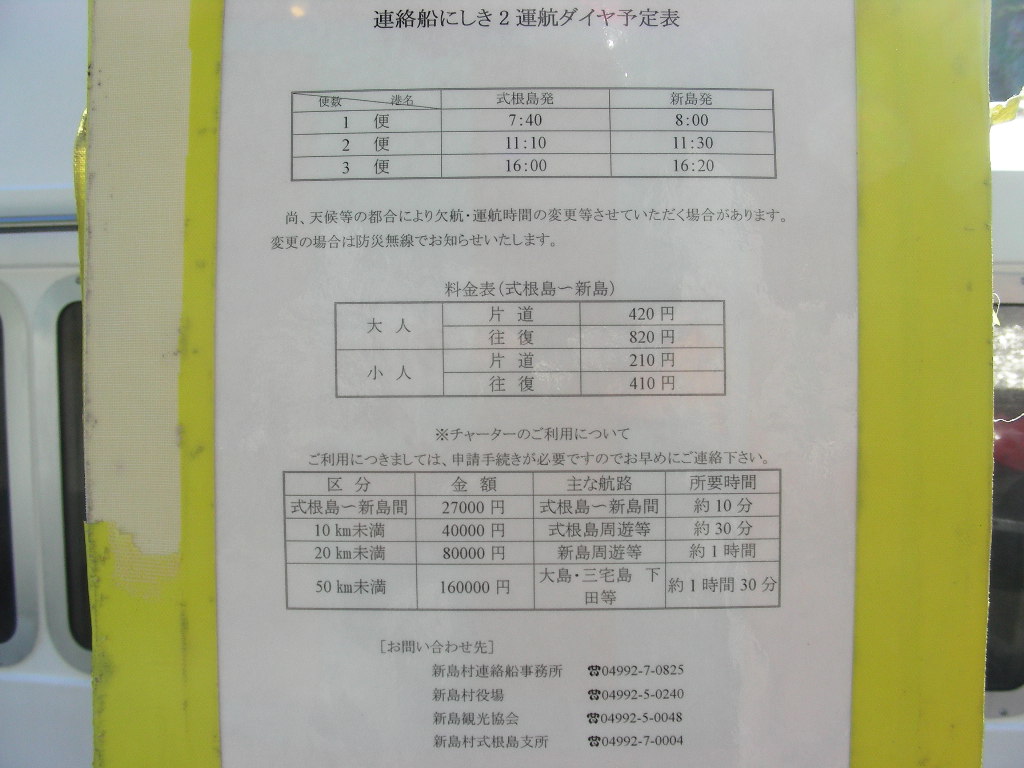 連絡船にしき２運航ダイヤ予定表
便数 港名 式根島発 新島発
1 便 7:40 8:00
2 便 11:10 11:30
3 便 16:00 16:20
尚、天候等の都合により欠航・運航時間の変更等させていただく場合があります。
変更の場合は防災無線でお知らせいたします。
料金表（式根島～新島）
大 人 片 道 420 円
往 復 820 円
小 人 片 道 210 円
往 復 410 円
※チャーターのご利用について
ご利用につきましては、申請手続きが必要ですのでお早めにご連絡下さい。
区 分 金 額 主な航路 所要時間
式根島～新島間 27000 円 式根島～新島間 約 10 分
10 ㎞未満 40000 円 式根島周遊等 約 30 分
20 ㎞未満 80000 円 新島周遊等 約 1 時間
50 ㎞未満 160000 円 大島・三宅島 下
田等 約 1 時間 30 分
［お問い合わせ先］
新島村連絡船事務所 ☎04992-7-0825
新島村役場 ☎04992-5-0240
新島観光協会 ☎04992-5-0048
新島村式根島支所 ☎04992-7-0004